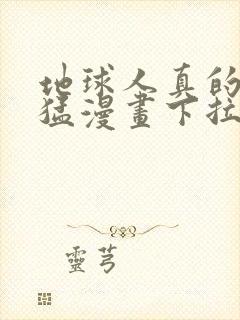 地球人真的
猛漫畫下拉
靈芎